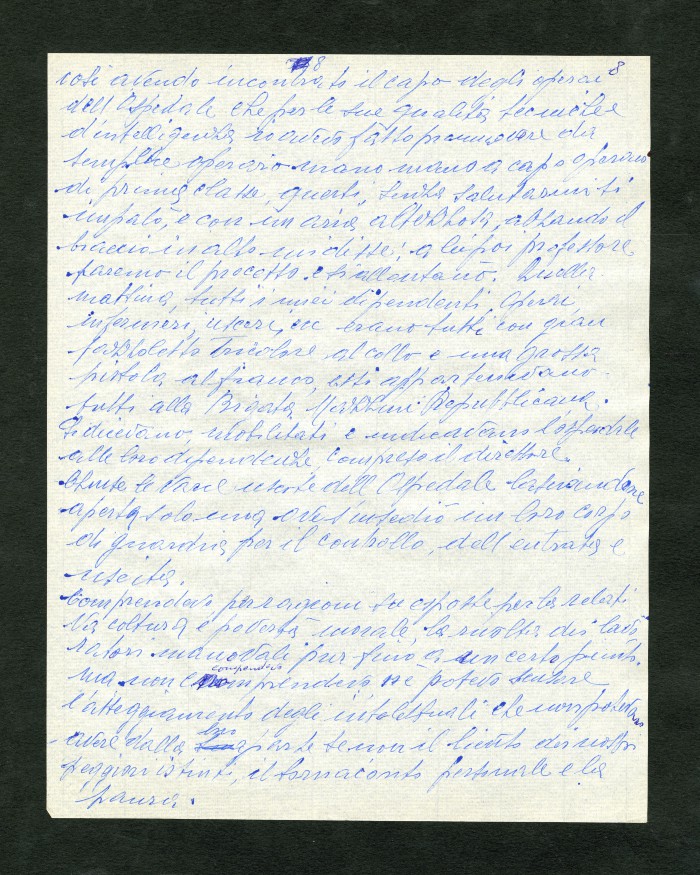 8 8
così avendo incontrato il capo degli operai
dell'Ospedale che per le sue qualità tecniche e
d'intelligenza io avevo fatto promuovere da
semplice operaio mano mano a capo operaio
di prima classe, questi, senza salutarmi si
impalò, e con un aria altezzosa, alzando il
braccio in alto mi disse: a lupior professore
faremo il processo e si allontanò. Quella
mattina, tutti i miei dipendenti, operai
infermieri, uscieri, ecc erano tutti con gran
fazzoletto Tricolore al collo e una grossa
pistola al fianco, essi appartenevano
tutti alla Brigata Mazzini Repubblicana.
Si dicevano mobilitati e indicavano l'ospedale
alle loro dipendenze, compreso il direttore.
Chiuse le varie uscite dell'Ospedale lasciandone
aperta solo una ove s'insediò un loro corpo
di guardia per il controllo, dell'entrata e
uscita.
Comprendevo per ragioni su esposte per la relati
va coltura e povertà morale, la rivolta dei lavo
ratori manovali pur fino a un certo punto.
ma non comprendevo nè potevo scusare
l'atteggiamento degli intellettuali che non potevano
avere dalla loro parte se non il lievito dei nostri
peggiori istinti, il tornaconto personale e la
paura.